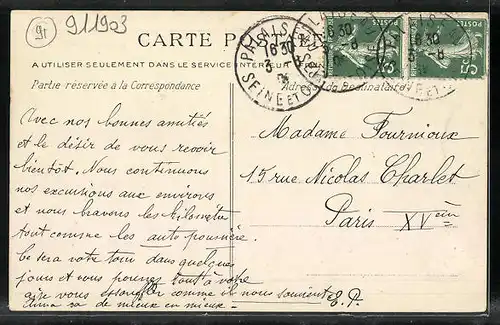 91 911903
CARTE POSTALE
A UTILISER SEULEMENT DANS LE SERVICE INTERIEUR
Partie réservée à la Correspondance
Adresse du Destinataire
PALAISEAU
16 30
3 - 8
SEINE ET OISE
Avec nos bonnes amitiés
et le désir de vous revoir
bientôt. Nous continuons
nos excursions aux environs
et nous bravons les kilomètres
tout comme les auto poussière.
Ce sera votre tour dans quelques
jours et vous pourrez tout à votre
aise vous essouffler comme il nous
de mieux en mieux
Madame Fournioux
15 rue Nicolas Charlet
Paris XVème